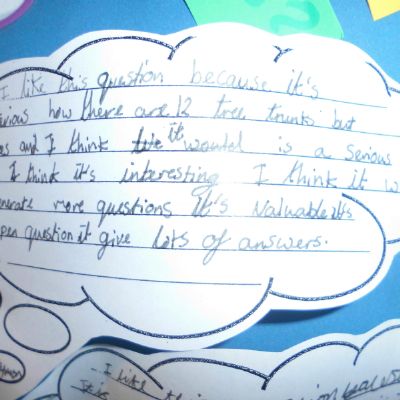 I like this question because it's
how there are 12 tree trunks but
and I think it would is a serious
I think it's interesting I think it w
enerate more questions it's valuable its
pen question it give lots of answers.
I like thi
It is